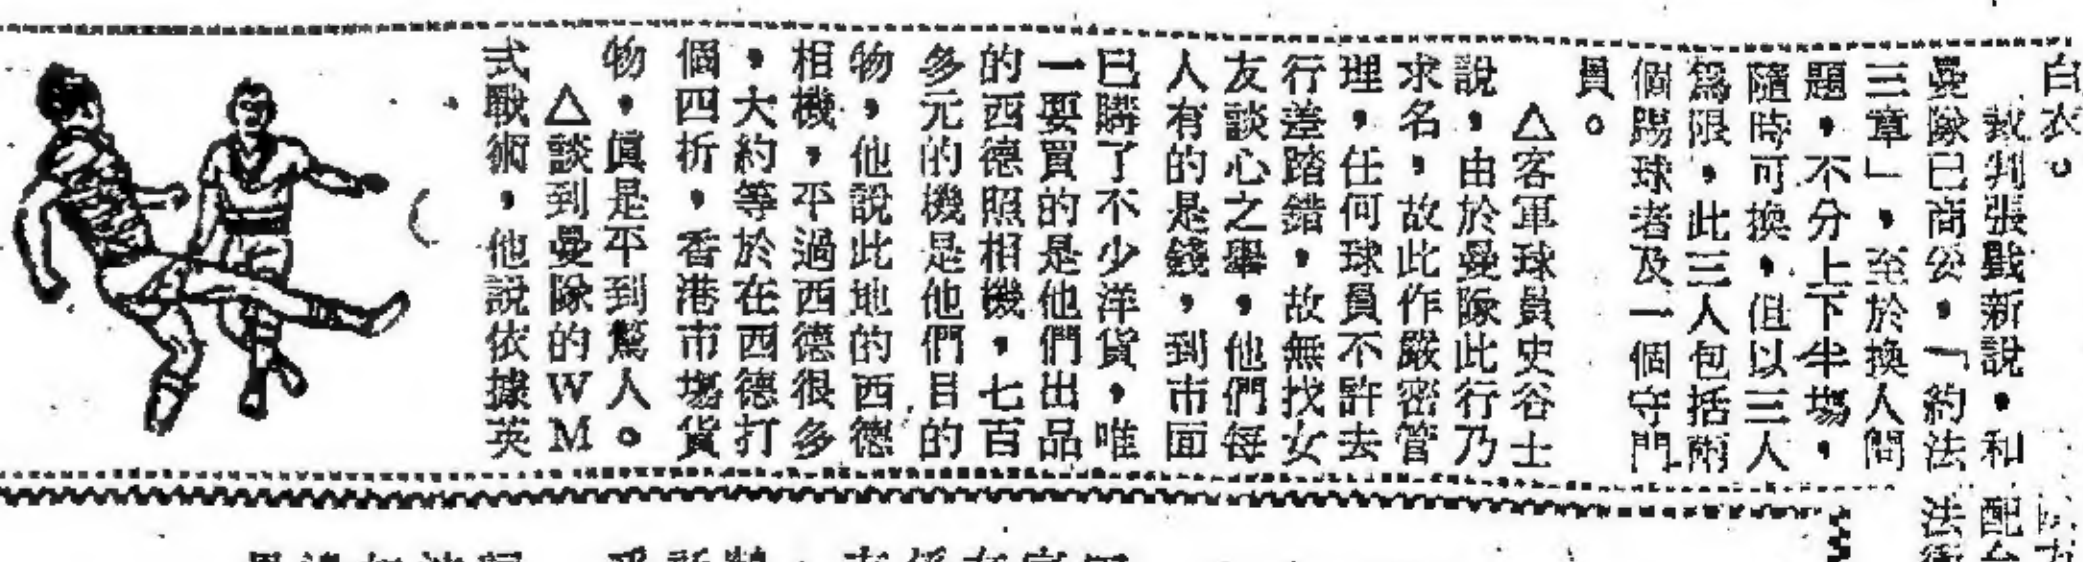 白衣。
裁判張戩新說,和
曼隊已商公,「約法
三章」,至於換人問
題,不分上下半塲,
隨時可換,但以三人
爲限,此三人包括兩
個踢球者及一個守門
員。
△客軍球員史谷士
說,由於曼隊此行乃
求名,故此作嚴密管
理,任何球員不許去
行差踏錯,故無找女
友談心之舉,他們每
人有的是錢,到市面
已購了不少洋貨,唯
一要買的是他們出品
的西德照相機,七百
多元的機是他們目的
物,他說此地的西德
相機,平過西德很多
,大約等於在西德打
個四折,香港市塲貨
物,眞是平到驚人。
△談到曼隊的WM
式戰術,他說依據英
配
法